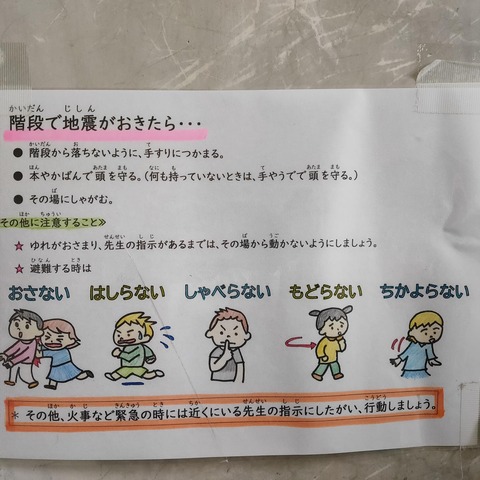 階段で地震がおきたら・・・
● 階段から落ちないように、手すりにつかまる。
● 本やかばんで頭を守る。(何も持っていないときは、手やうでで頭を守る。)
● その場にしゃがむ。
その他に注意すること≫
★ ゆれがおさまり、先生の指示があるまでは、その場から動かないようにしましょう。
★ 避難する時は
おさない はしらない しゃべらない もどらない ちかよらない
* その他、火事など緊急の時には近くにいる先生の指示にしたがい、行動しましょう。